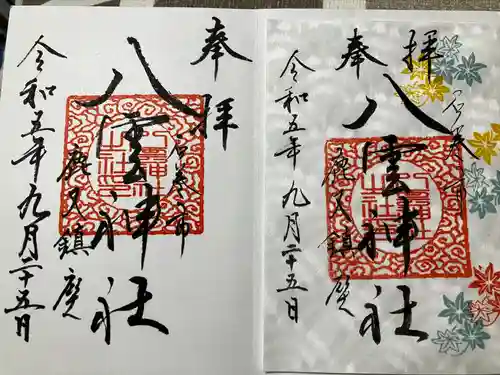 奉拝
石巻市
八雲神社
鹿又鎮座
令和五年九月二十五日
奉拝
石巻市
八雲神社
鹿又鎮座
令和五年九月二十五日